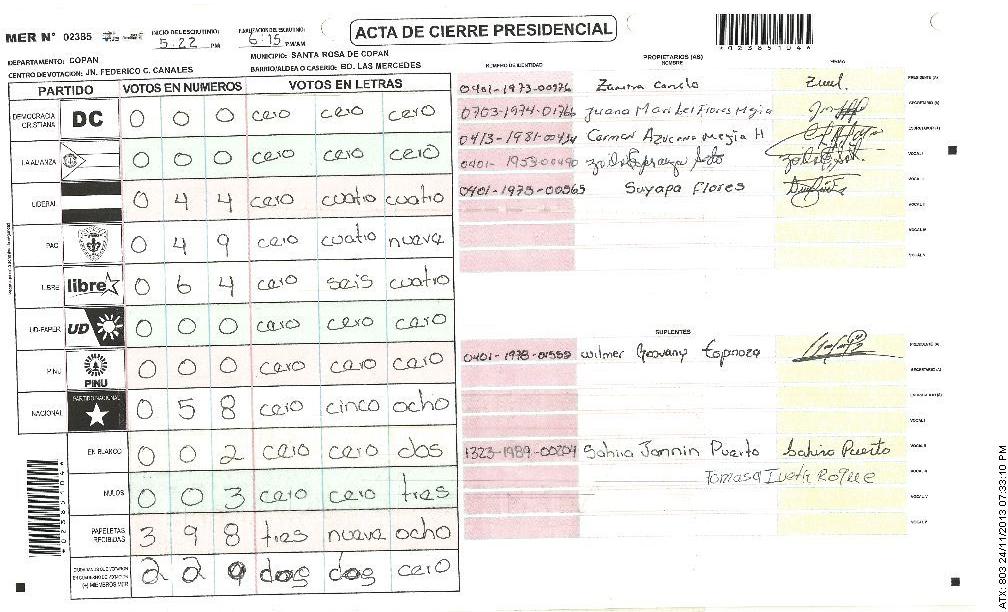 ACTA DE CIERRE PRESIDENCIAL
MER N° 02385
INICIO DEL ESCRUTINIO: 5:22 PM
6:15 PM/AM
DEPARTAMENTO: COPAN
MUNICIPIO: SANTA ROSA DE COPAN
CENTRO DE VOTACION: JN. FEDERICO C. CANALES
BARRIO/ALDEA O CASERIO: BO. LAS MERCEDES
PARTIDO VOTOS EN NUMEROS VOTOS EN LETRAS
DEMOCRACIA CRISTIANA DC 0 0 0 cero cero cero
LA ALIANZA 0 0 0 cero cero cero
LIBERAL 0 4 4 cero cuatro cuatro
PAC 0 4 9 cero cuatro nueve
LIBRE libre 0 6 4 cero seis cuatro
UD-FAPER UD 0 0 0 cero cero cero
PINU PINU 0 0 0 cero cero cero
NACIONAL PARTIDO NACIONAL 0 5 8 cero cinco ocho
EN BLANCO 0 0 2 cero cero dos
NULOS 0 0 3 cero cero tres
PAPELETAS RECIBIDAS 3 9 8 tres nueve ocho
(+) MIEMBROS MER 2 2 0 dos dos cero
NUMERO DE IDENTIDAD
PROPIETARIOS (AS)
NOMBRE
FIRMA
0401-1973-00976 PRESIDENTE (A)
0703-1974-01766 Juana Maribel Flores Mejia SECRETARIO (A)
0413-1981-00434 Carmen Azucena Mejia H ESCRUTADOR (A)
0401-1953-00490 VOCAL I
0401-1975-00565 Suyapa Flores
SUPLENTES
0401-1978-01559 Wilmer Geovany Espinoza PRESIDENTE (A)
SECRETARIO (A)
ESCRUTADOR (A)
VOCAL I
1323-1989-00204 Sahira Jannin Puerto Sahira Puerto
Tomasa Iveth
*02385104*
ATX: 803 24/11/2013 07:33:10 PM